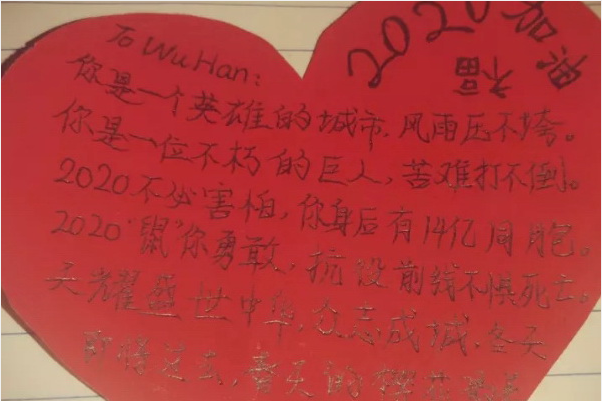 To WuHan:
2020加
你是一个英雄的城市,风雨压不垮。
你是一位不朽的巨人,苦难打不倒。
2020不必害怕,你身后有14亿同胞。
2020"鼠"你勇敢,抗役前线不惧死亡。
天耀盛世中华,众志成城,冬天
即将过去,春天的樱花